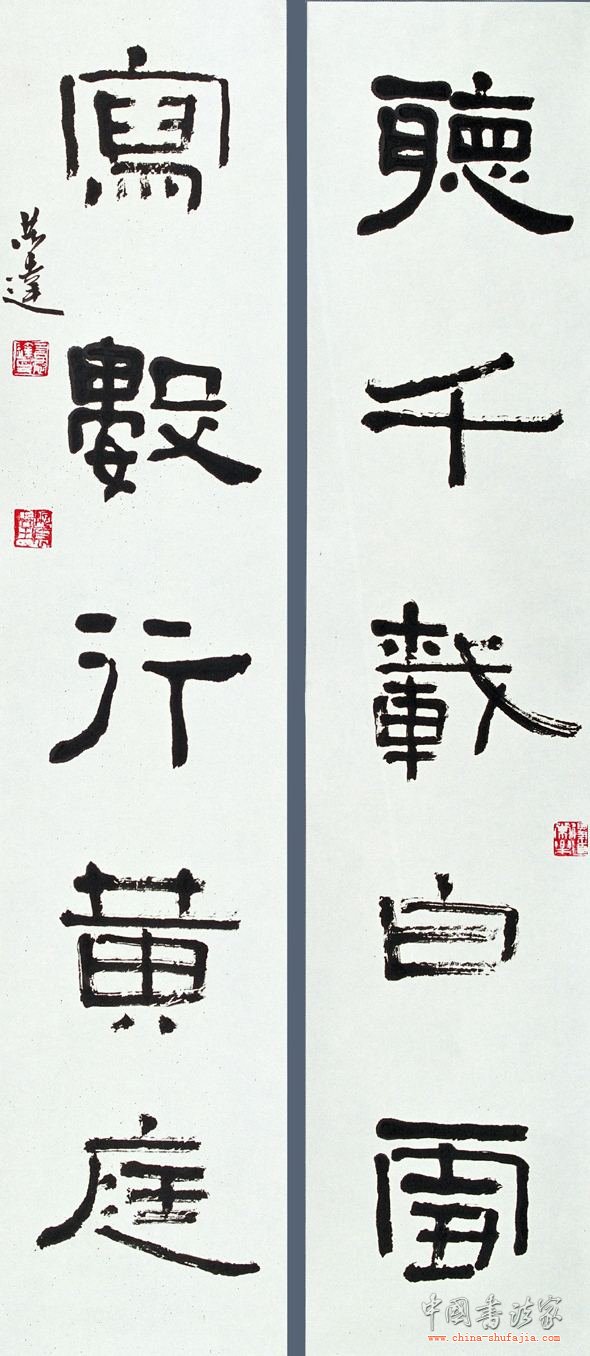 聽千載白雪
寫數行黃庭
中國書法家
www.china-shufajia.com